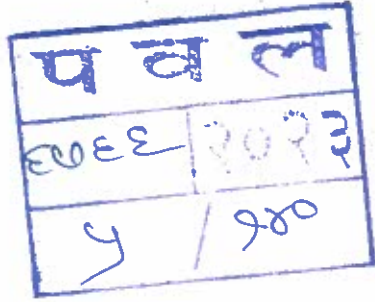 प व ल
६७६६ २०२३
५ / १४०